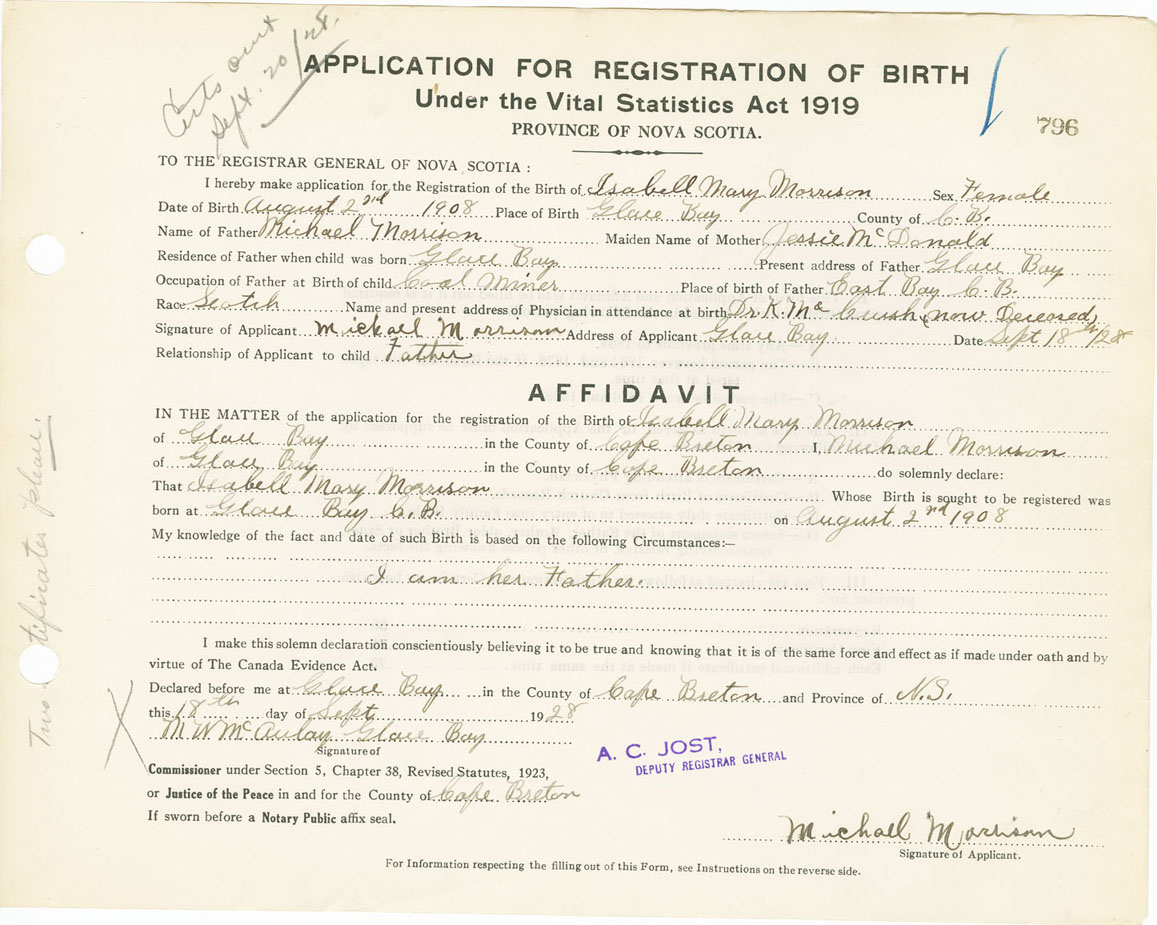 Certs out
Sept. 20/28.
APPLICATION FOR REGISTRATION OF BIRTH
Under the Vital Statistics Act 1919
PROVINCE OF NOVA SCOTIA.
796
TO THE REGISTRAR GENERAL OF NOVA SCOTIA :
I hereby make application for the Registration of the Birth of Isabell Mary Morrison Sex Female
Date of Birth August 2nd 1908 Place of Birth Glace Bay County of C.B.
Name of Father Michael Morrison Maiden Name of Mother Jessie McDonald
Residence of Father when child was born Glace Bay Present address of Father Glace Bay
Occupation of Father at Birth of child Coal Miner Place of birth of Father East Bay C.B.
Race Scotch Name and present address of Physician in attendance at birth Dr. K. Mc (now Deceased)
Signature of Applicant Michael Morrison Address of Applicant Glace Bay Date Sept 18th/28
Relationship of Applicant to child Father
AFFIDAVIT
IN THE MATTER of the application for the registration of the Birth of Isabell Mary Morrison
of Glace Bay in the County of Cape Breton I, Michael Morrison
of Glace Bay in the County of Cape Breton do solemnly declare:
That Isabell Mary Morrison Whose Birth is sought to be registered was
born at Glace Bay C.B. on August 2nd 1908
My knowledge of the fact and date of such Birth is based on the following Circumstances:—
I am her Father.
I make this solemn declaration conscientiously believing it to be true and knowing that it is of the same force and effect as if made under oath and by
virtue of The Canada Evidence Act.
Declared before me at Glace Bay in the County of Cape Breton and Province of N.S.
this 18th day of Sept 1928
M W McAulay Glace Bay
Signature of
A. C. JOST,
DEPUTY REGISTRAR GENERAL
Commissioner under Section 5, Chapter 38, Revised Statutes, 1923,
or Justice of the Peace in and for the County of Cape Breton
If sworn before a Notary Public affix seal.
Michael Morrison
Signature of Applicant.
For Information respecting the filling out of this Form, see Instructions on the reverse side.
Two certificates please.